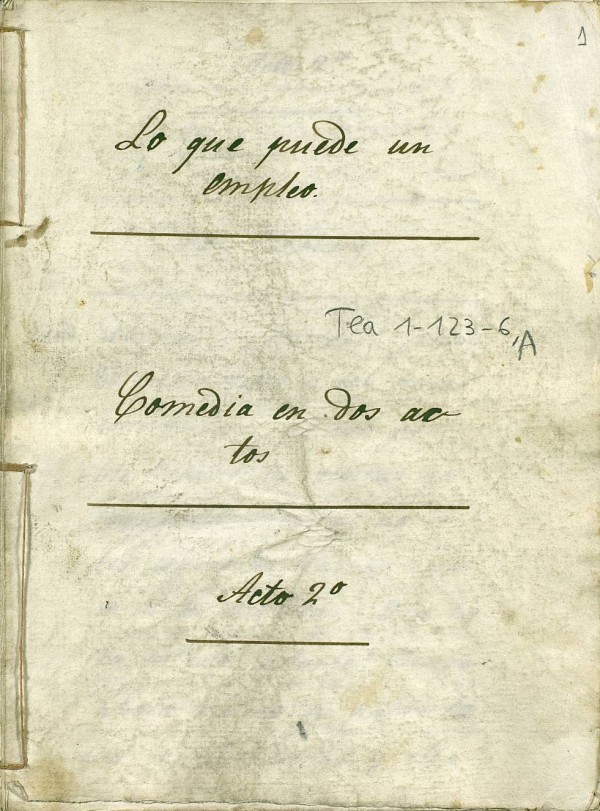 1
Lo que puede un
empleo.
Tea 1-123-6,A
Comedia en dos ac-
tos
Acto 2º